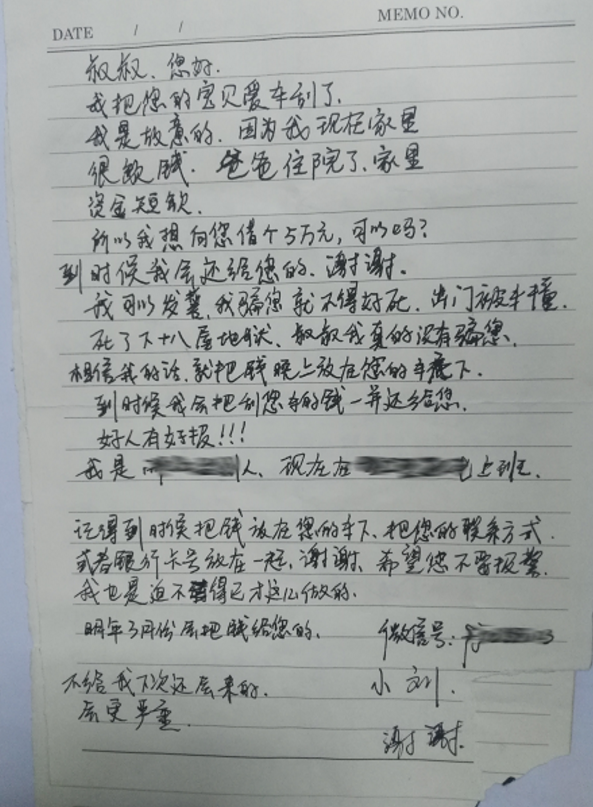 MEMO NO.
DATE / /
叔叔、您好.
我把您的宝贝爱车刮了、
我是故意的、因为我现在家里
很缺钱. 爸爸住院了、家里
资金短缺.
所以我想向您借个5万元,可以吗?
到时候我会还给您的、谢谢.
我可以发誓,我骗您就不得好死、出门被车撞.
死了下十八层地狱、叔叔我真的没有骗您、
相信我的话、就把钱晚上放在您的车底下.
到时候我会把刮您车的钱一并还给您.
好人有好报!!!
我是 人、现在在 上班.
记得到时候把钱放在您的车下、把您的联系方式
或者银行卡号放在一起,谢谢、希望您不要报警.
我也是迫不得已才这么做的.
明年3月份会把钱给您的.
微信号:
不给我下次还会来的.
小刘.
会更严重.
谢谢.